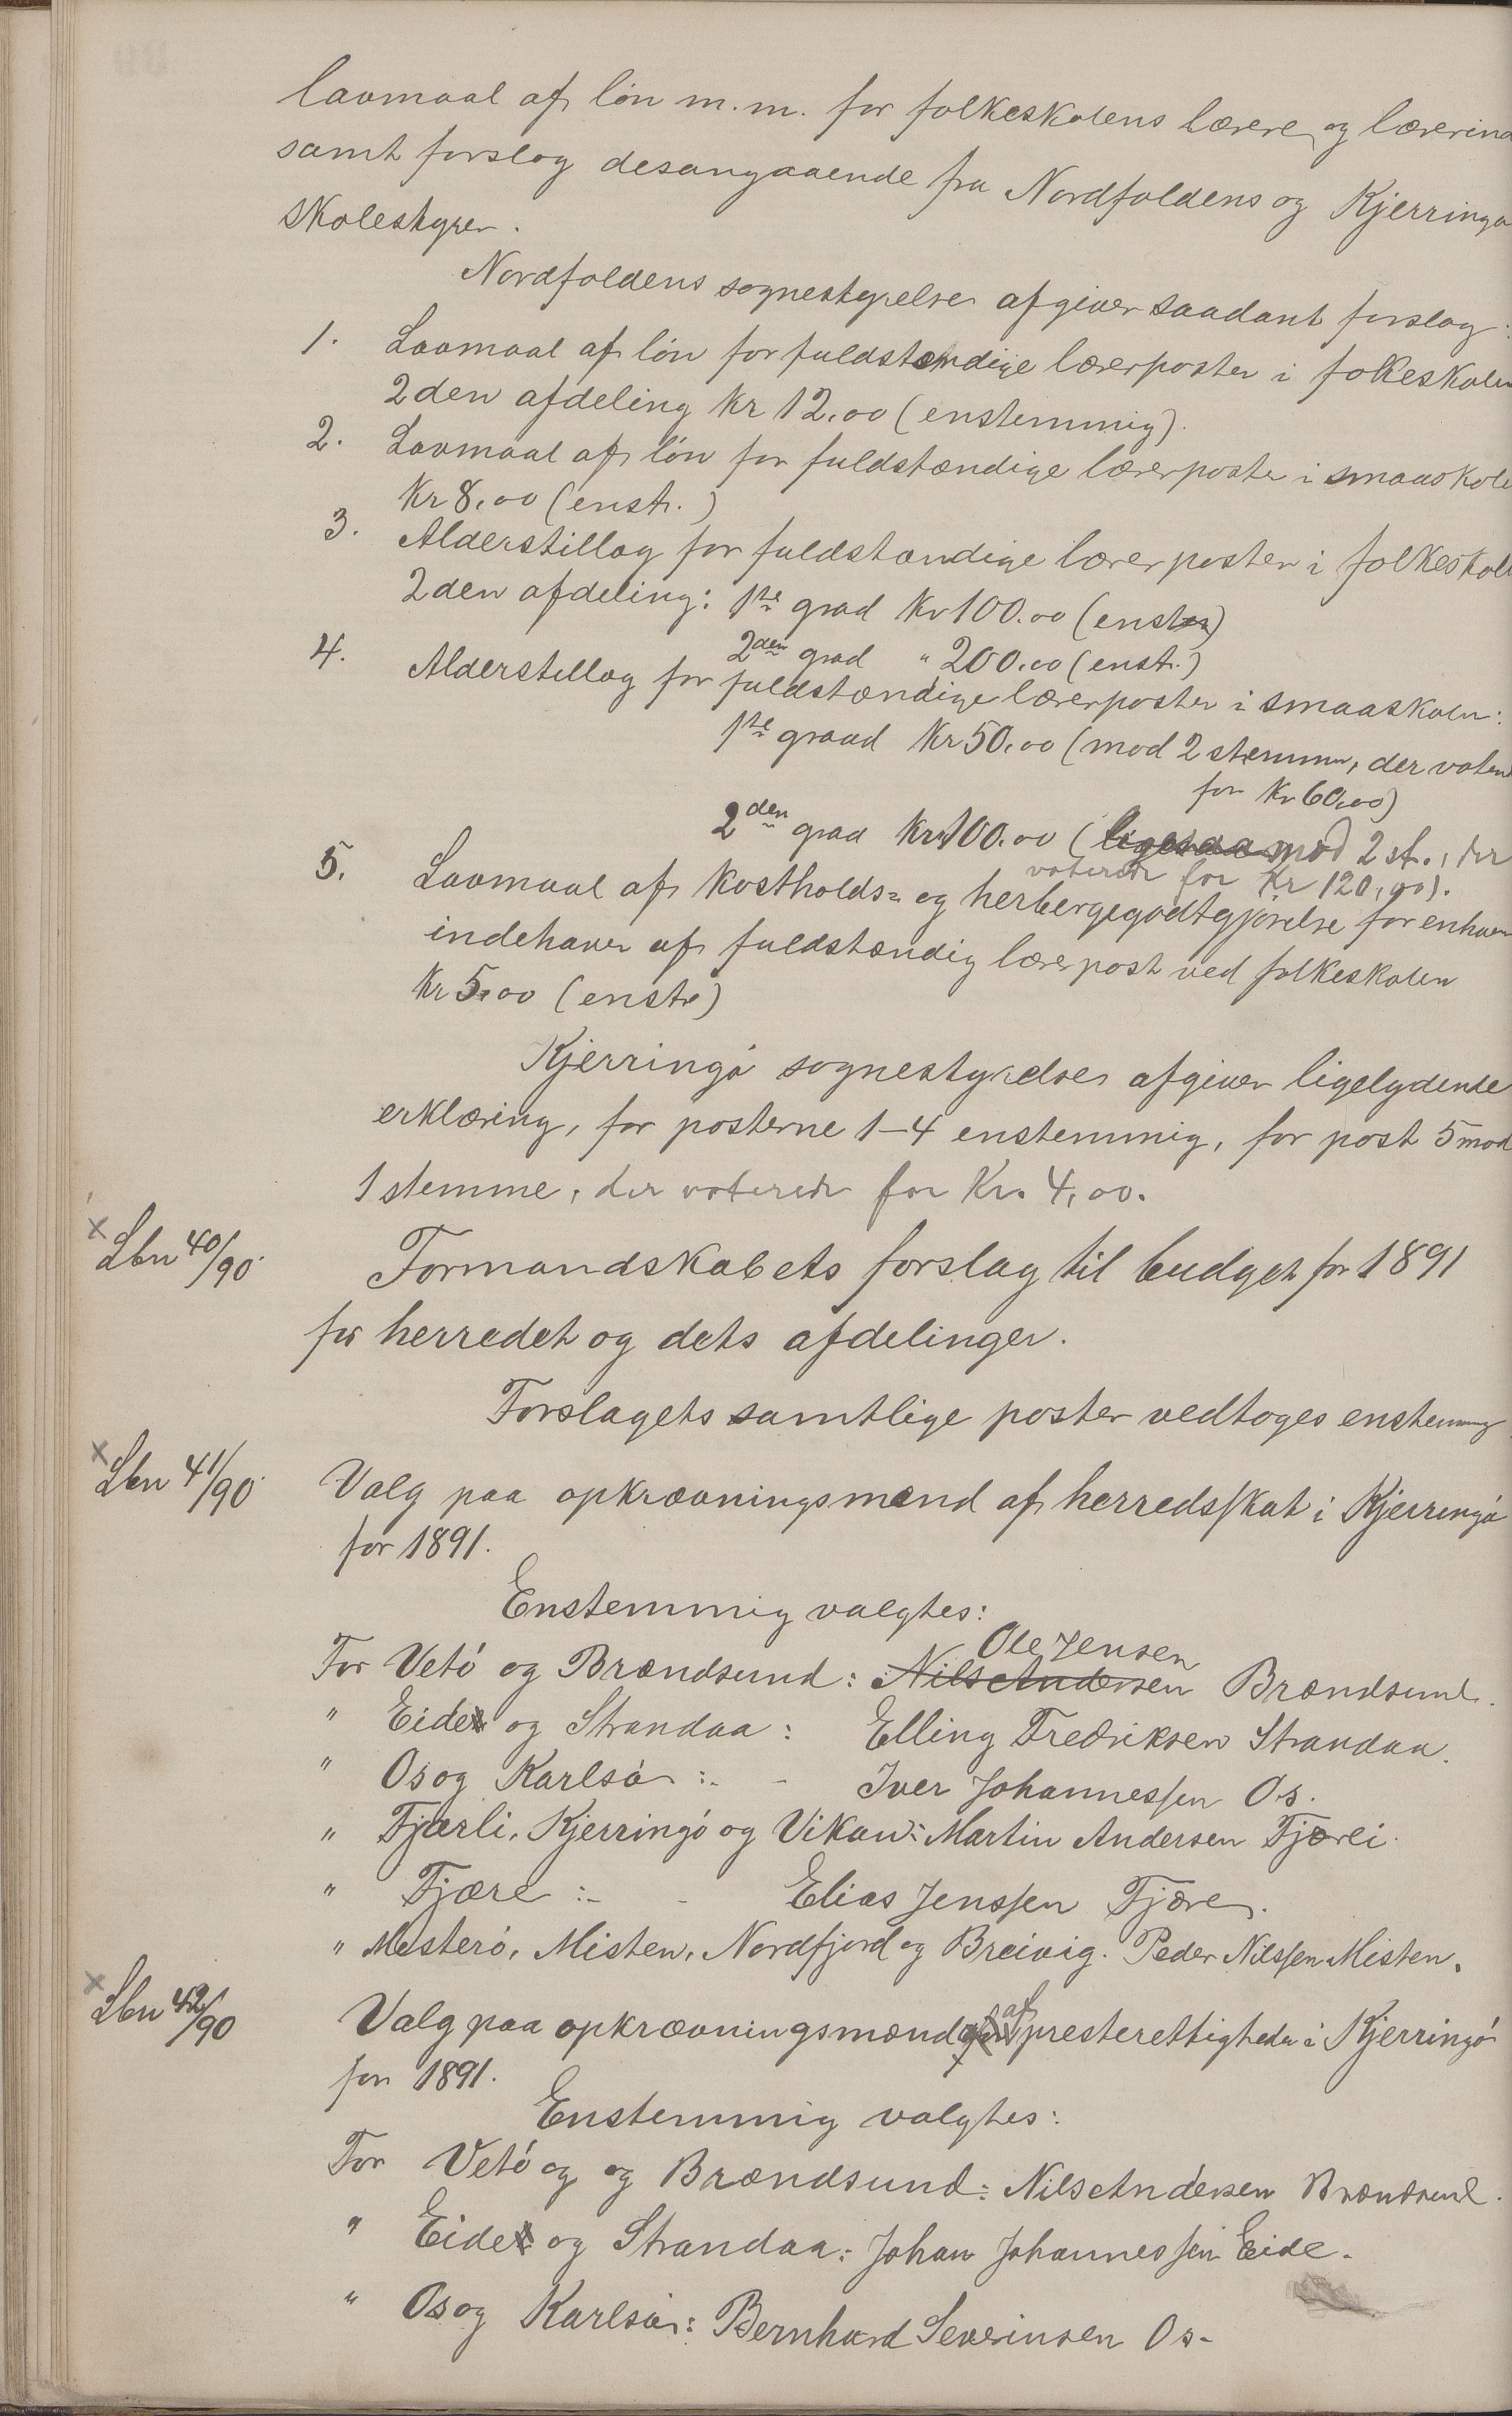 lavmaal af løn m.m. for folkeskolens lærere og lærerind
samt forslag desangaaende fra Nordfoldens og Kjerringø
skolestyrer.
Nordfoldens sognestyrelse afgiver saadant forslag:
1. Lavmaal af løn for fuldstændige lærerposter i folkeskolen
2den afdeling Kr 12.00 (enstemmig).
2. Lavmaal af løn for fuldstændige lærerposter i smaaskole
Kr 8,00 (enst.)
3. Alderstillæg for fuldstændige lærerposter i folkeskole
2den afdeling: 1ste grad Kr 100.00 (enst.)
2den grad " 200.00 (enst.)
4. Alderstillæg for fuldstændige lærerposter i smaaskolen:
1ste graad Kr 50,00 (mod 2 stemmer, der voter
for Kr 60,00)
2den grad Kr 100.00 (ligesaa mod 2 st., der
voterede for Kr 120,00).
5. Lavmaal af kostholds- og herbergegodtgjørelse for enhver
indehaver af fuldstændig lærerpost ved folkeskolen
Kr 5,00 (enst.)
Kjerringø sognestyrelse afgiver ligelydende
erklæring, for posterne 1-4 enstemmig, for post 5 mod
1 stemme, der voterede for Kr. 4,00.
Lbn 40/90. Formandskabets forslag til budget for 1891
for herredet og dets afdelinger.
Forslagets samtlige poster vedtoges enstemmig
Lbn 41/90. Valg paa opkrævningsmænd af herredsskat i Kjerringø
for 1891.
Enstemmig valgtes:
Ole Jensen
For Vetø og Brændsund: Nils Andersen Brændsund.
" Eide og Strandaa: Elling Fredriksen Strandaa.
" Os og Karlsø: - Iver Johannessen Os.
" Fjærli, Kjerringø og Vikan: Martin Andersen Fjærli.
" Fjære: - Elias Jenssen Fjære.
" Mesterø, Misten, Nordfjord og Breivig. Peder Nilssen Misten.
Lbn 42/90 Valg paa opkrævningsmænd af presterettigheder i Kjerringø
for 1891.
Enstemmig valgtes:
For Vetø og og Brændsund: Nils Andersen Brændsund.
" Eide og Strandaa: Johan Johannessen Eide.
" Os og Karlsø: Bernhard Severinsen Os.